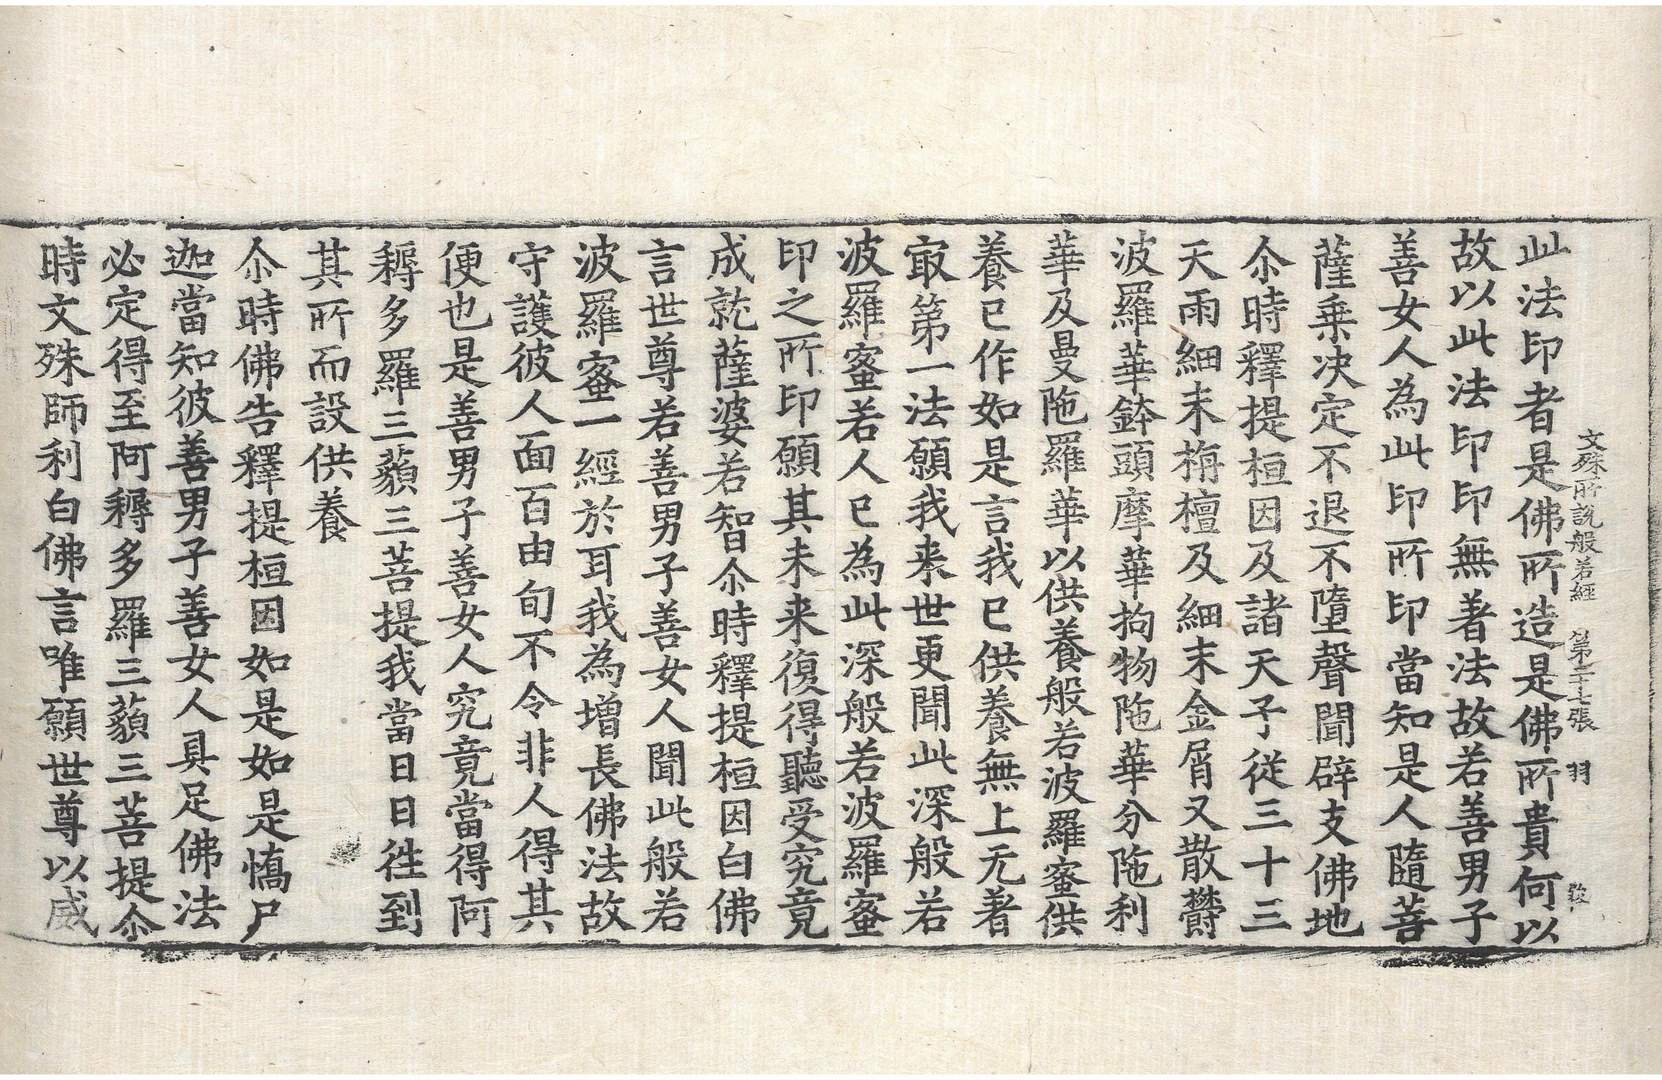 文殊所說般若經 第二十七張 羽
此法印者是佛所造是佛所貴何以
故以此法印印無著法故若善男子
善女人為此印所印當知是人隨菩
薩乗决定不退不墮聲聞辟支佛地
尒時釋提桓因及諸天子從三十三
天雨細末栴檀及細末金屑又散欝
波羅華鉢頭摩華拘物陁華分陁利
華及曼陁羅華以供養般若波羅蜜供
養已作如是言我已供養無上无著
㝡第一法願我来世更聞此深般若
波羅蜜若人已為此深般若波羅蜜
印之所印願其未来復得聽受究竟
成就薩婆若智尒時釋提桓因白佛
言世尊若善男子善女人聞此般若
波羅蜜一經於耳我為增長佛法故
守護彼人面百由旬不令非人得其
便也是善男子善女人究竟當得阿
耨多羅三藐三菩提我當日日徃到
其所而設供養
尒時佛告釋提桓因如是如是憍尸
迦當知彼善男子善女人具足佛法
必定得至阿耨多羅三藐三菩提尒
時文殊師利白佛言唯願世尊以威